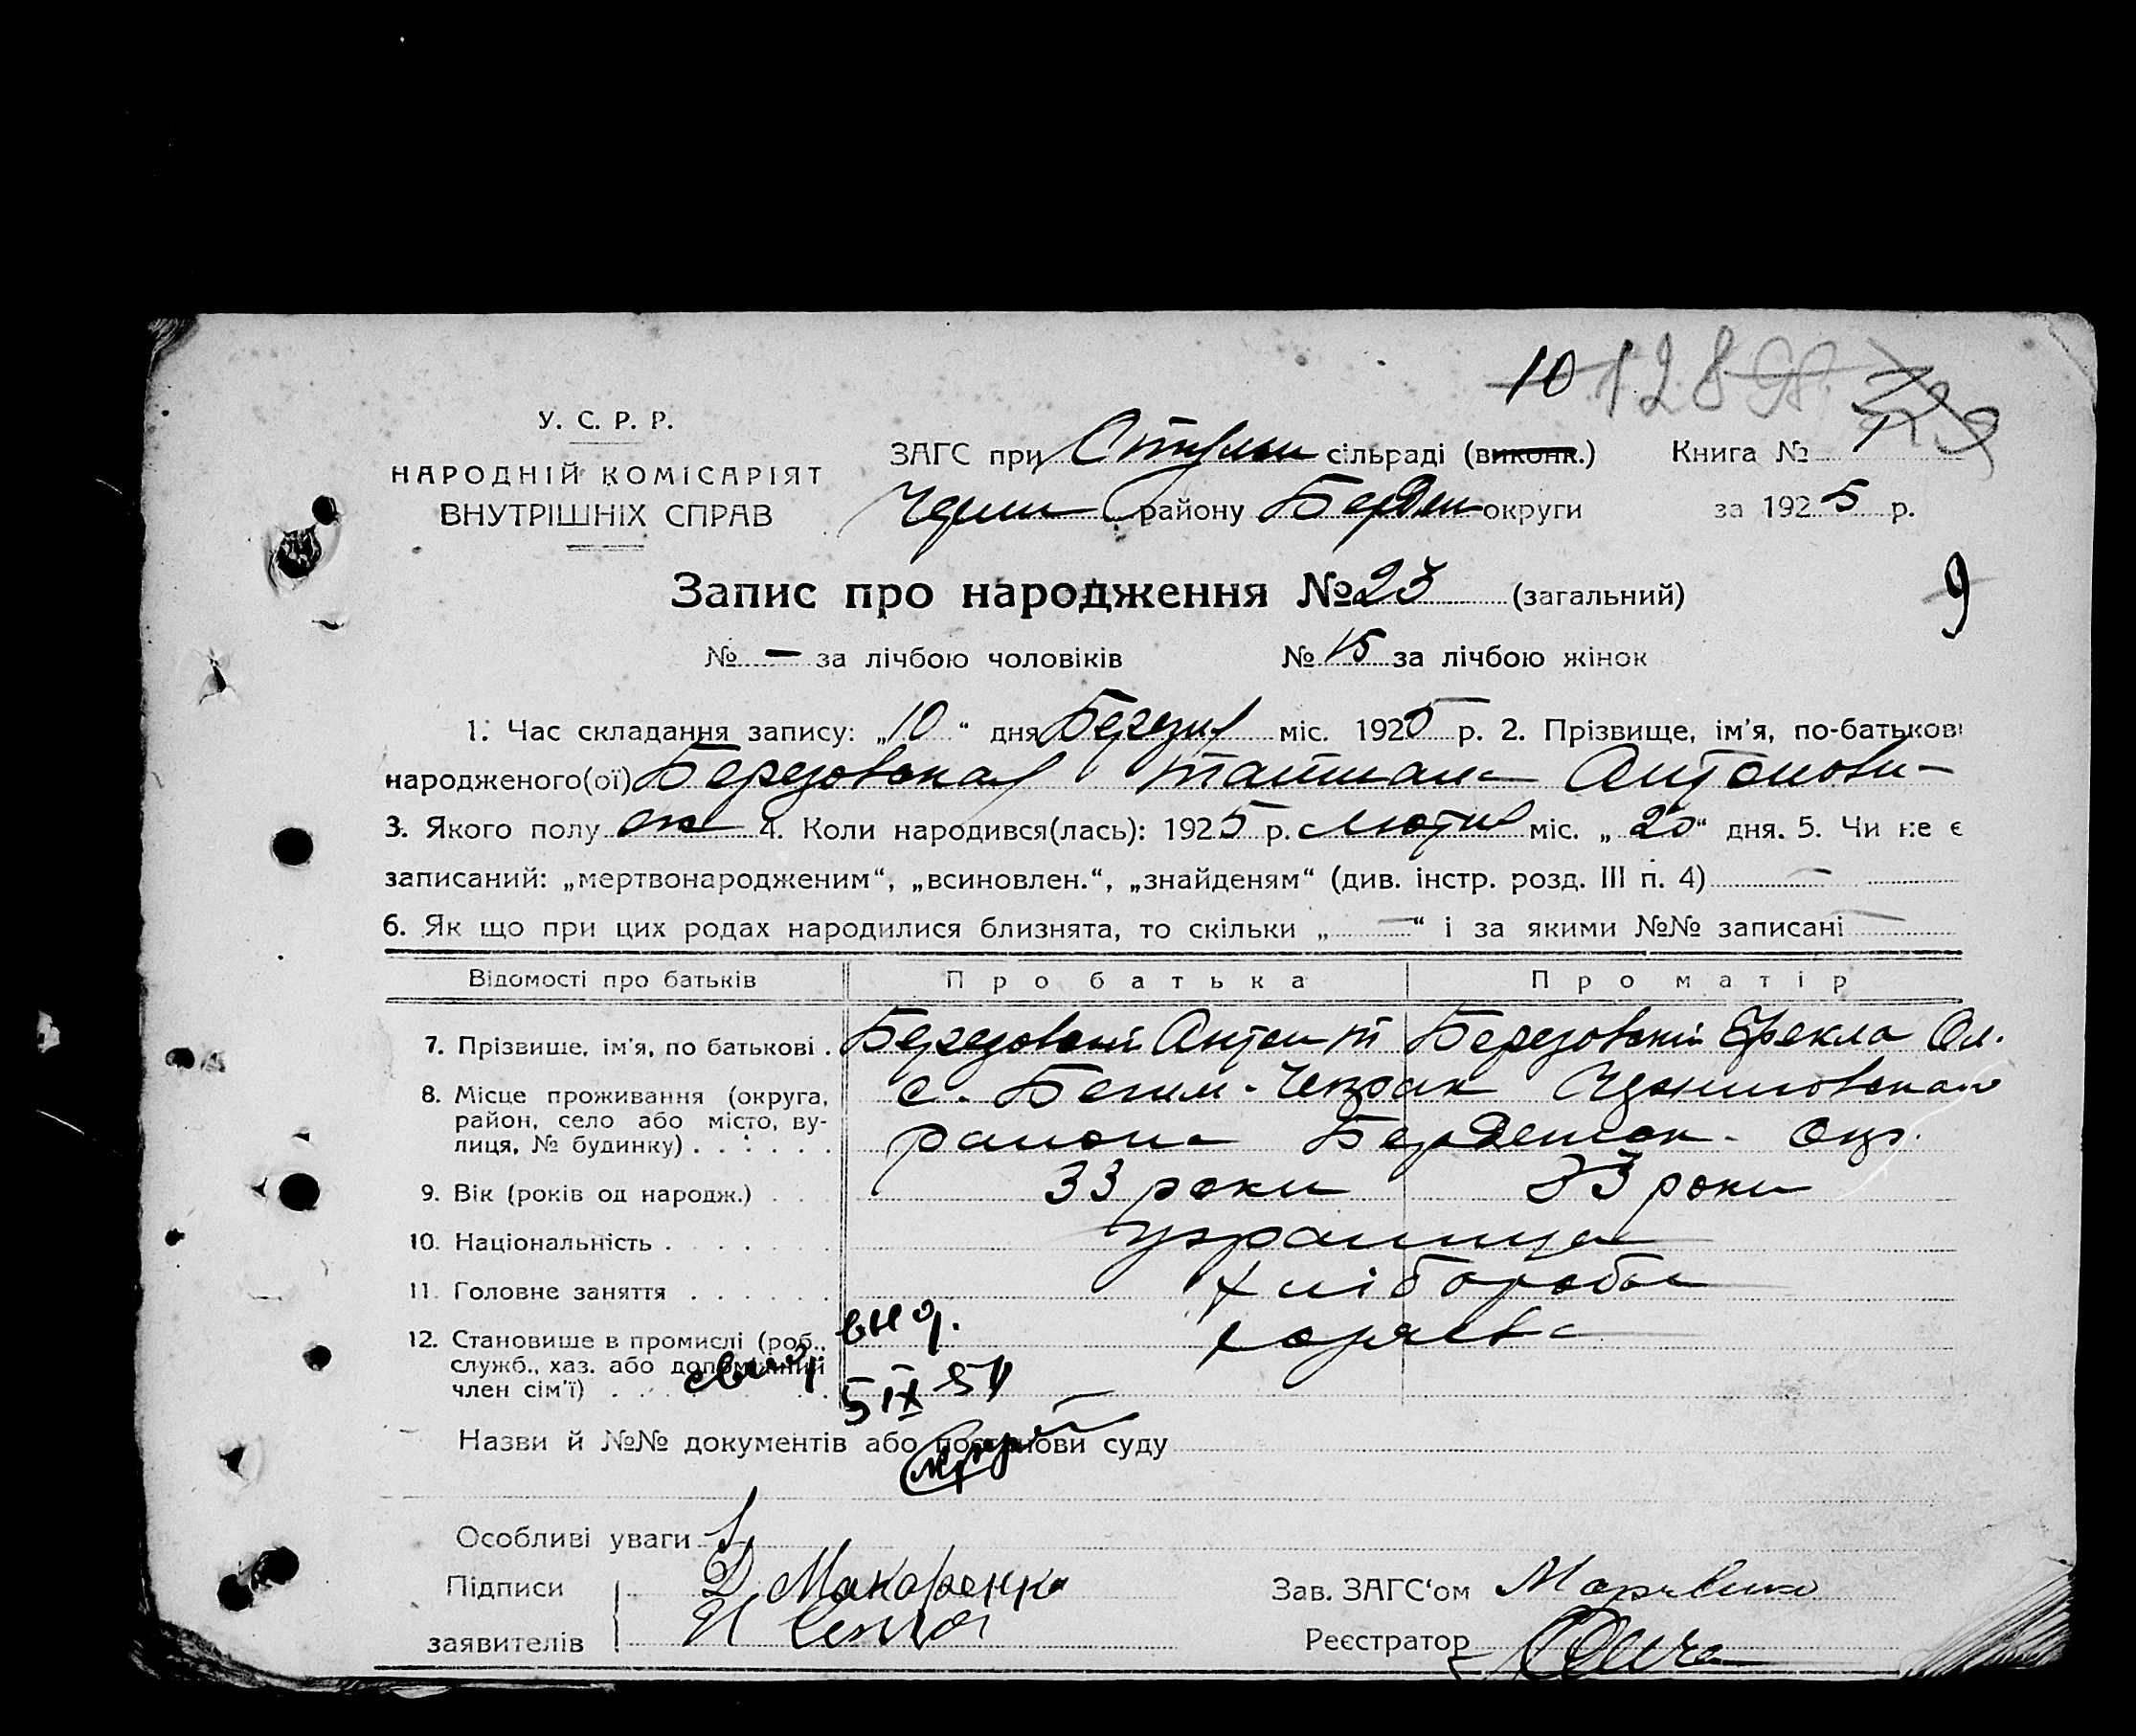 10 128
У. С. Р. Р.
НАРОДНІЙ КОМІСАРІЯТ
ВНУТРІШНІХ СПРАВ
ЗАГС при сільраді (виконк.) Книга № 1
району Бердян округи за 1925 р.
Запис про народження № 23 (загальний)
9
№ — за лічбою чоловіків № 15 за лічбою жінок
1. Час складання запису: „10“ дня Березня міс. 1925 р. 2. Прізвище, ім'я, по-батькові
народженого(ої) Березовская Татиана Антонови-
3. Якого полу 4. Коли народився(лась): 1925 р. Лютня міс. „20“ дня. 5. Чи не є
записаний: „мертвонародженим“, „всиновлен.“, „знайденям“ (див. інстр. розд. III п. 4) —
6. Як що при цих родах народилися близнята, то скільки „—“ і за якими №№ записані —
Відомості про батьків Про батька Про матір
7. Прізвище, ім'я, по батькові . Березовский Антон Березовский Фекла Ол.
8. Місце проживання (округа, район, село або місто, вулиця, № будинку) . . . . . . с. Бегим-Чокрак
района Бердянск. Окр.
9. Вік (років од народж.) . . . 33 роки 33 роки
10. Національність . . . . . . українця
11. Головне заняття . . . . . . хлібороби
12. Становище в промислі (роб.,
служб., хаз. або допоміжний
член сім'ї) . . . . хозяева
5 IX 51
Назви й №№ документів або постанови суду
Особливі уваги
Підписи Д. Макаренко
заявителів
Зав. ЗАГС'ом
Реєстратор